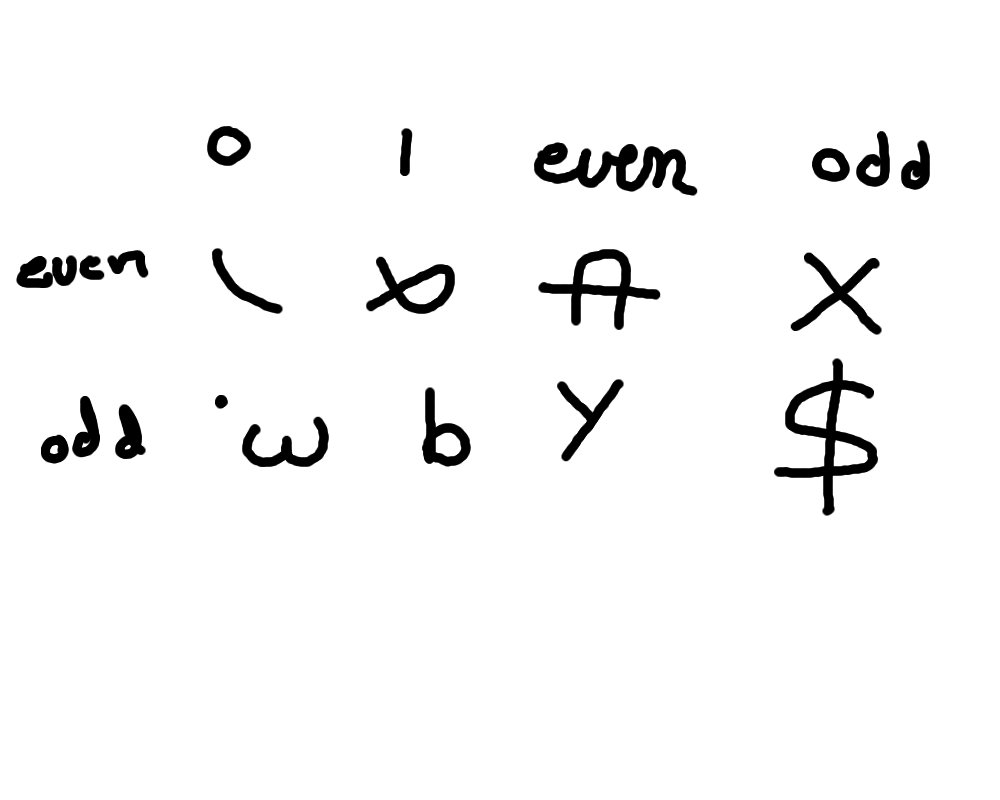 0 1 even odd
even \ A X
odd ω b Y $